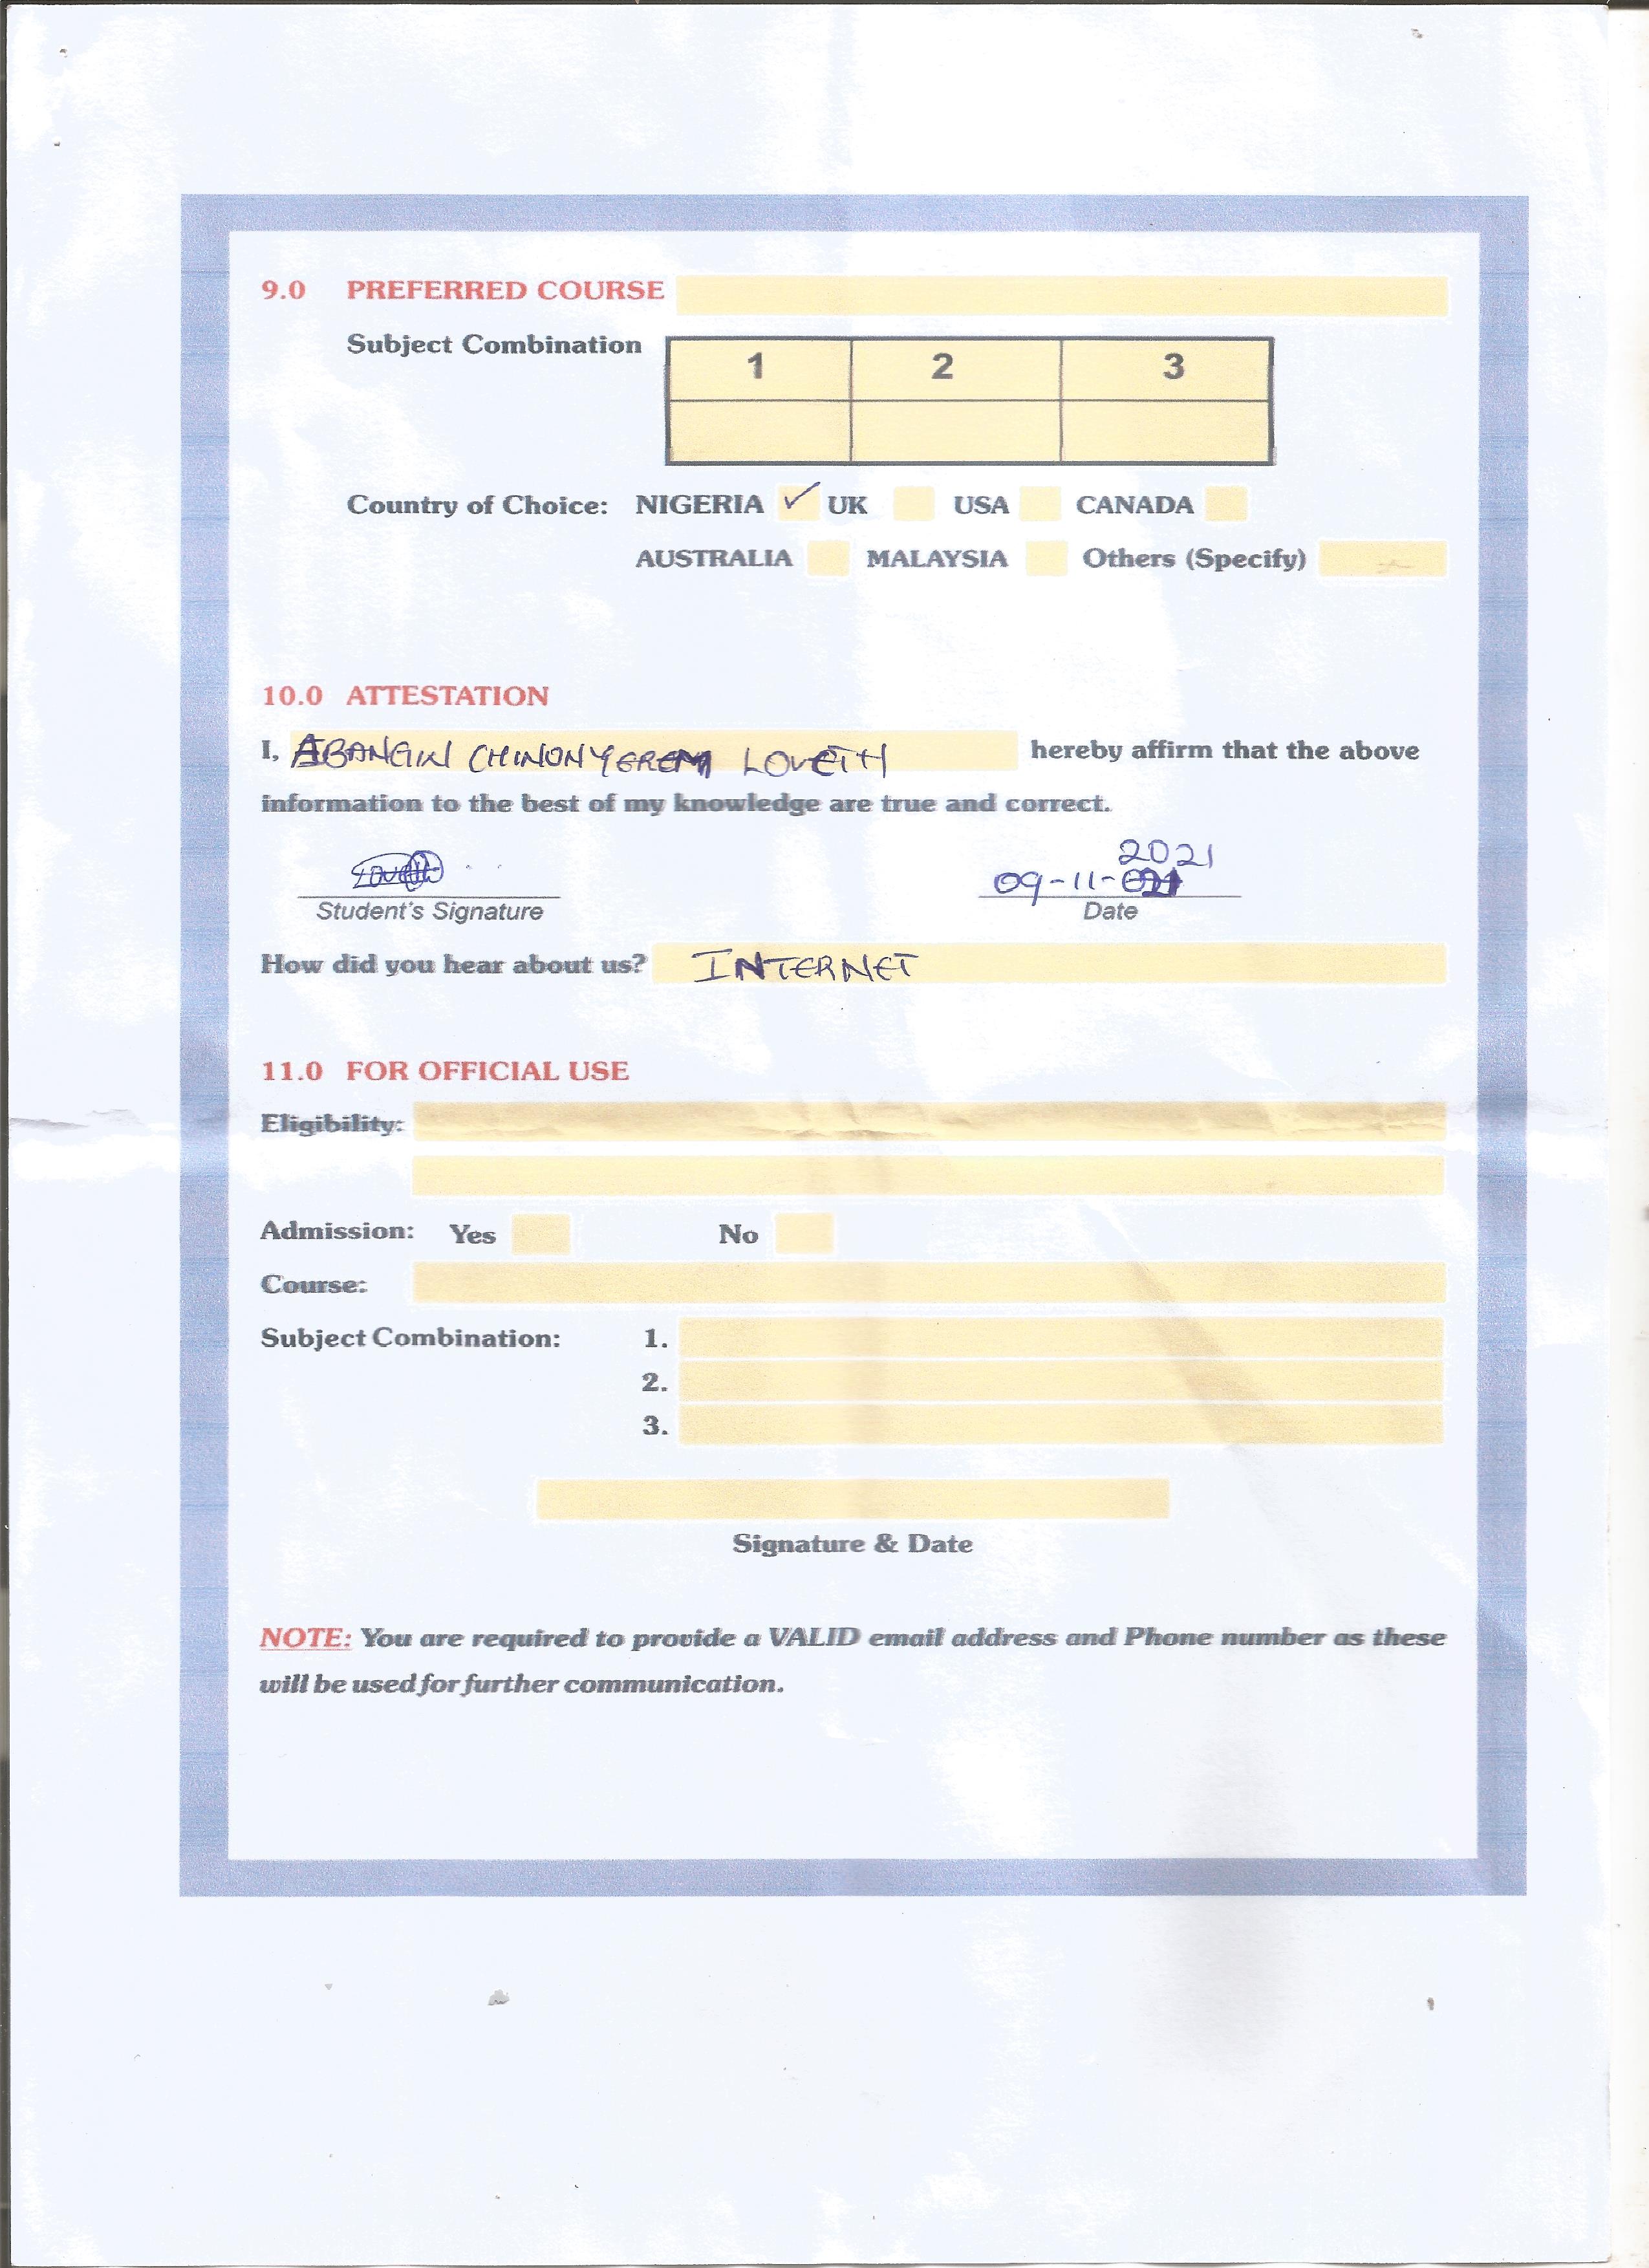 9.0 PREFERRED COURSE
Subject Combination
1 2 3
Country of Choice: NIGERIA ✓ UK USA CANADA
AUSTRALIA MALAYSIA Others (Specify)
10.0 ATTESTATION
I, CHINONYEREM LOVETH hereby affirm that the above
information to the best of my knowledge are true and correct.
2021
09-11-
Student's Signature Date
How did you hear about us? INTERNET
11.0 FOR OFFICIAL USE
Eligibility:
Admission: Yes No
Course:
Subject Combination: 1.
2.
3.
Signature & Date
NOTE: You are required to provide a VALID email address and Phone number as these
will be used for further communication.